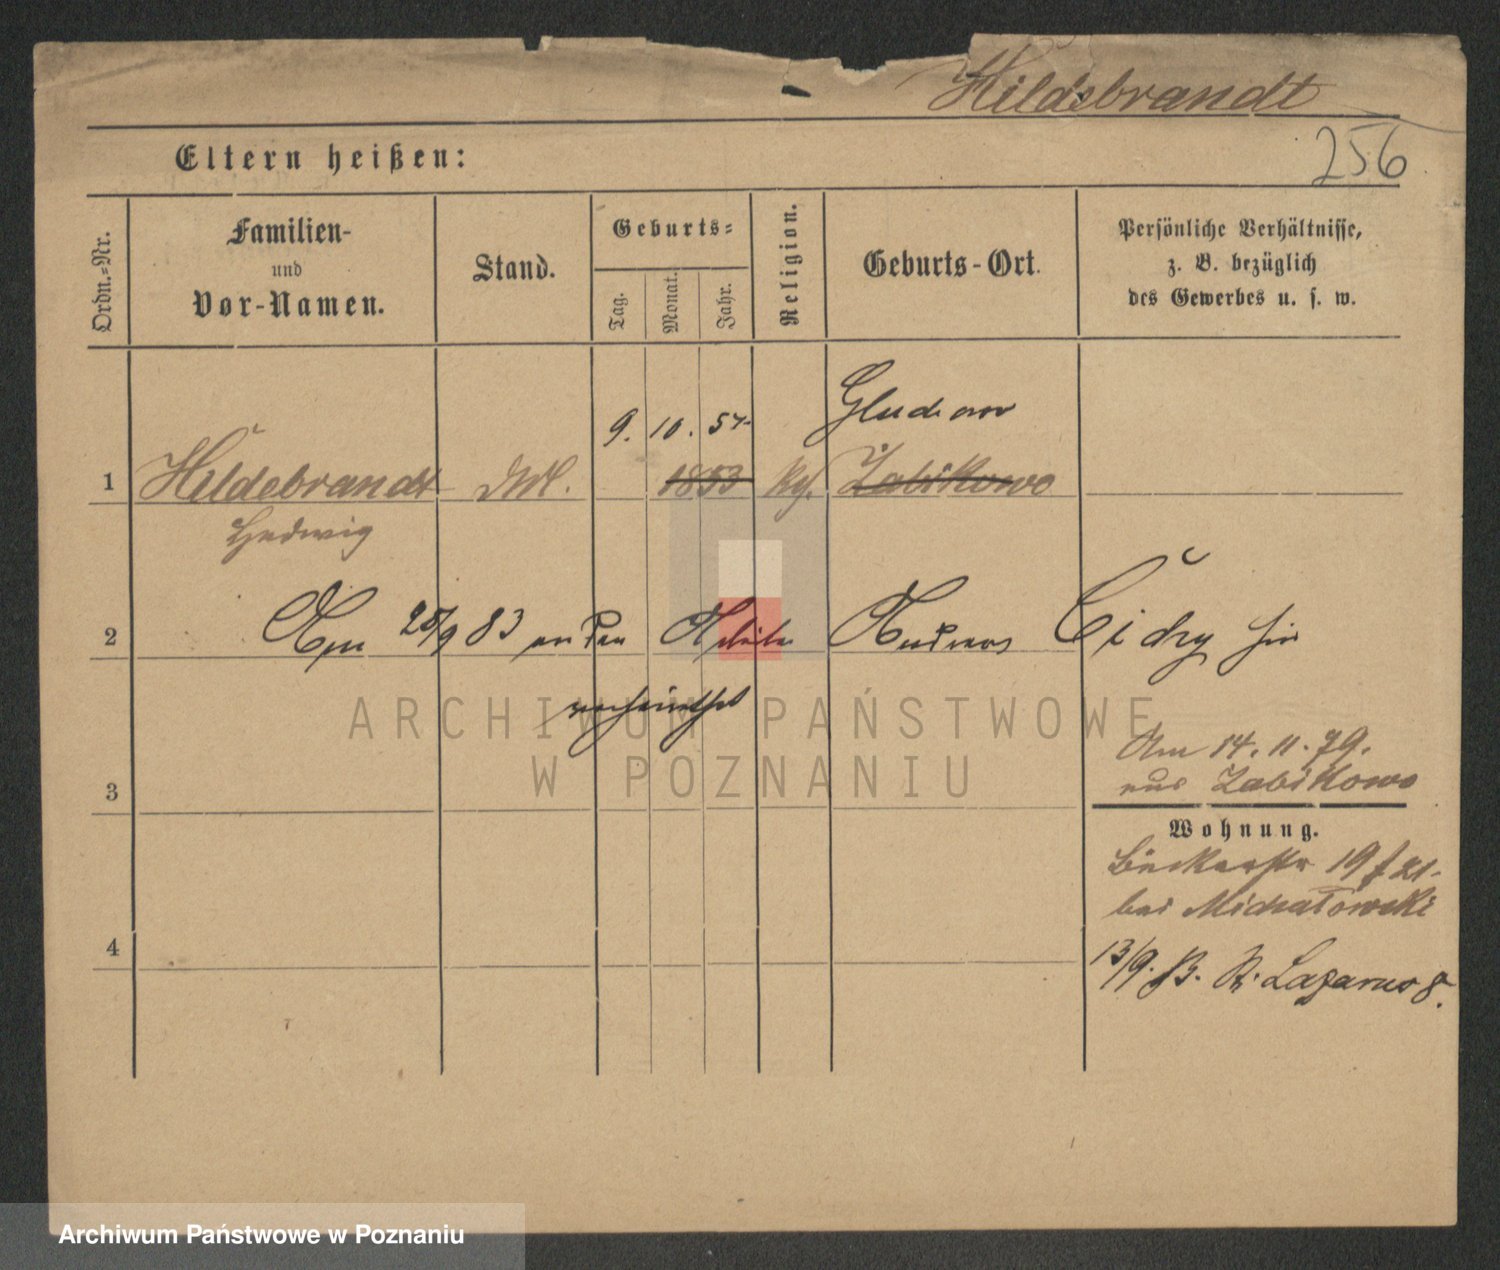 Hildebrandt
256
Eltern heißen:
Ordn.-Nr.
Familien-
und
Vor-Namen.
Stand.
Geburts-
Tag.
Monat.
Jahr.
Religion.
Geburts-Ort.
Persönliche Verhältnisse,
z. B. bezüglich
des Gewerbes u. s. w.
9. 10. 57.
1 Hildebrandt 1853 Zabikowo
Hedwig
2 Am 25/9 83 an den Andreas Cichy hier
verheirathet
ARCHIWUM PAŃSTWOWE
W POZNANIU
Am 14. 11. 79.
aus Zabikowo
3
Wohnung.
Bäckerstr 19
bei Michałowski
4
13/9. St. Lazarus 8.
Archiwum Państwowe w Poznaniu